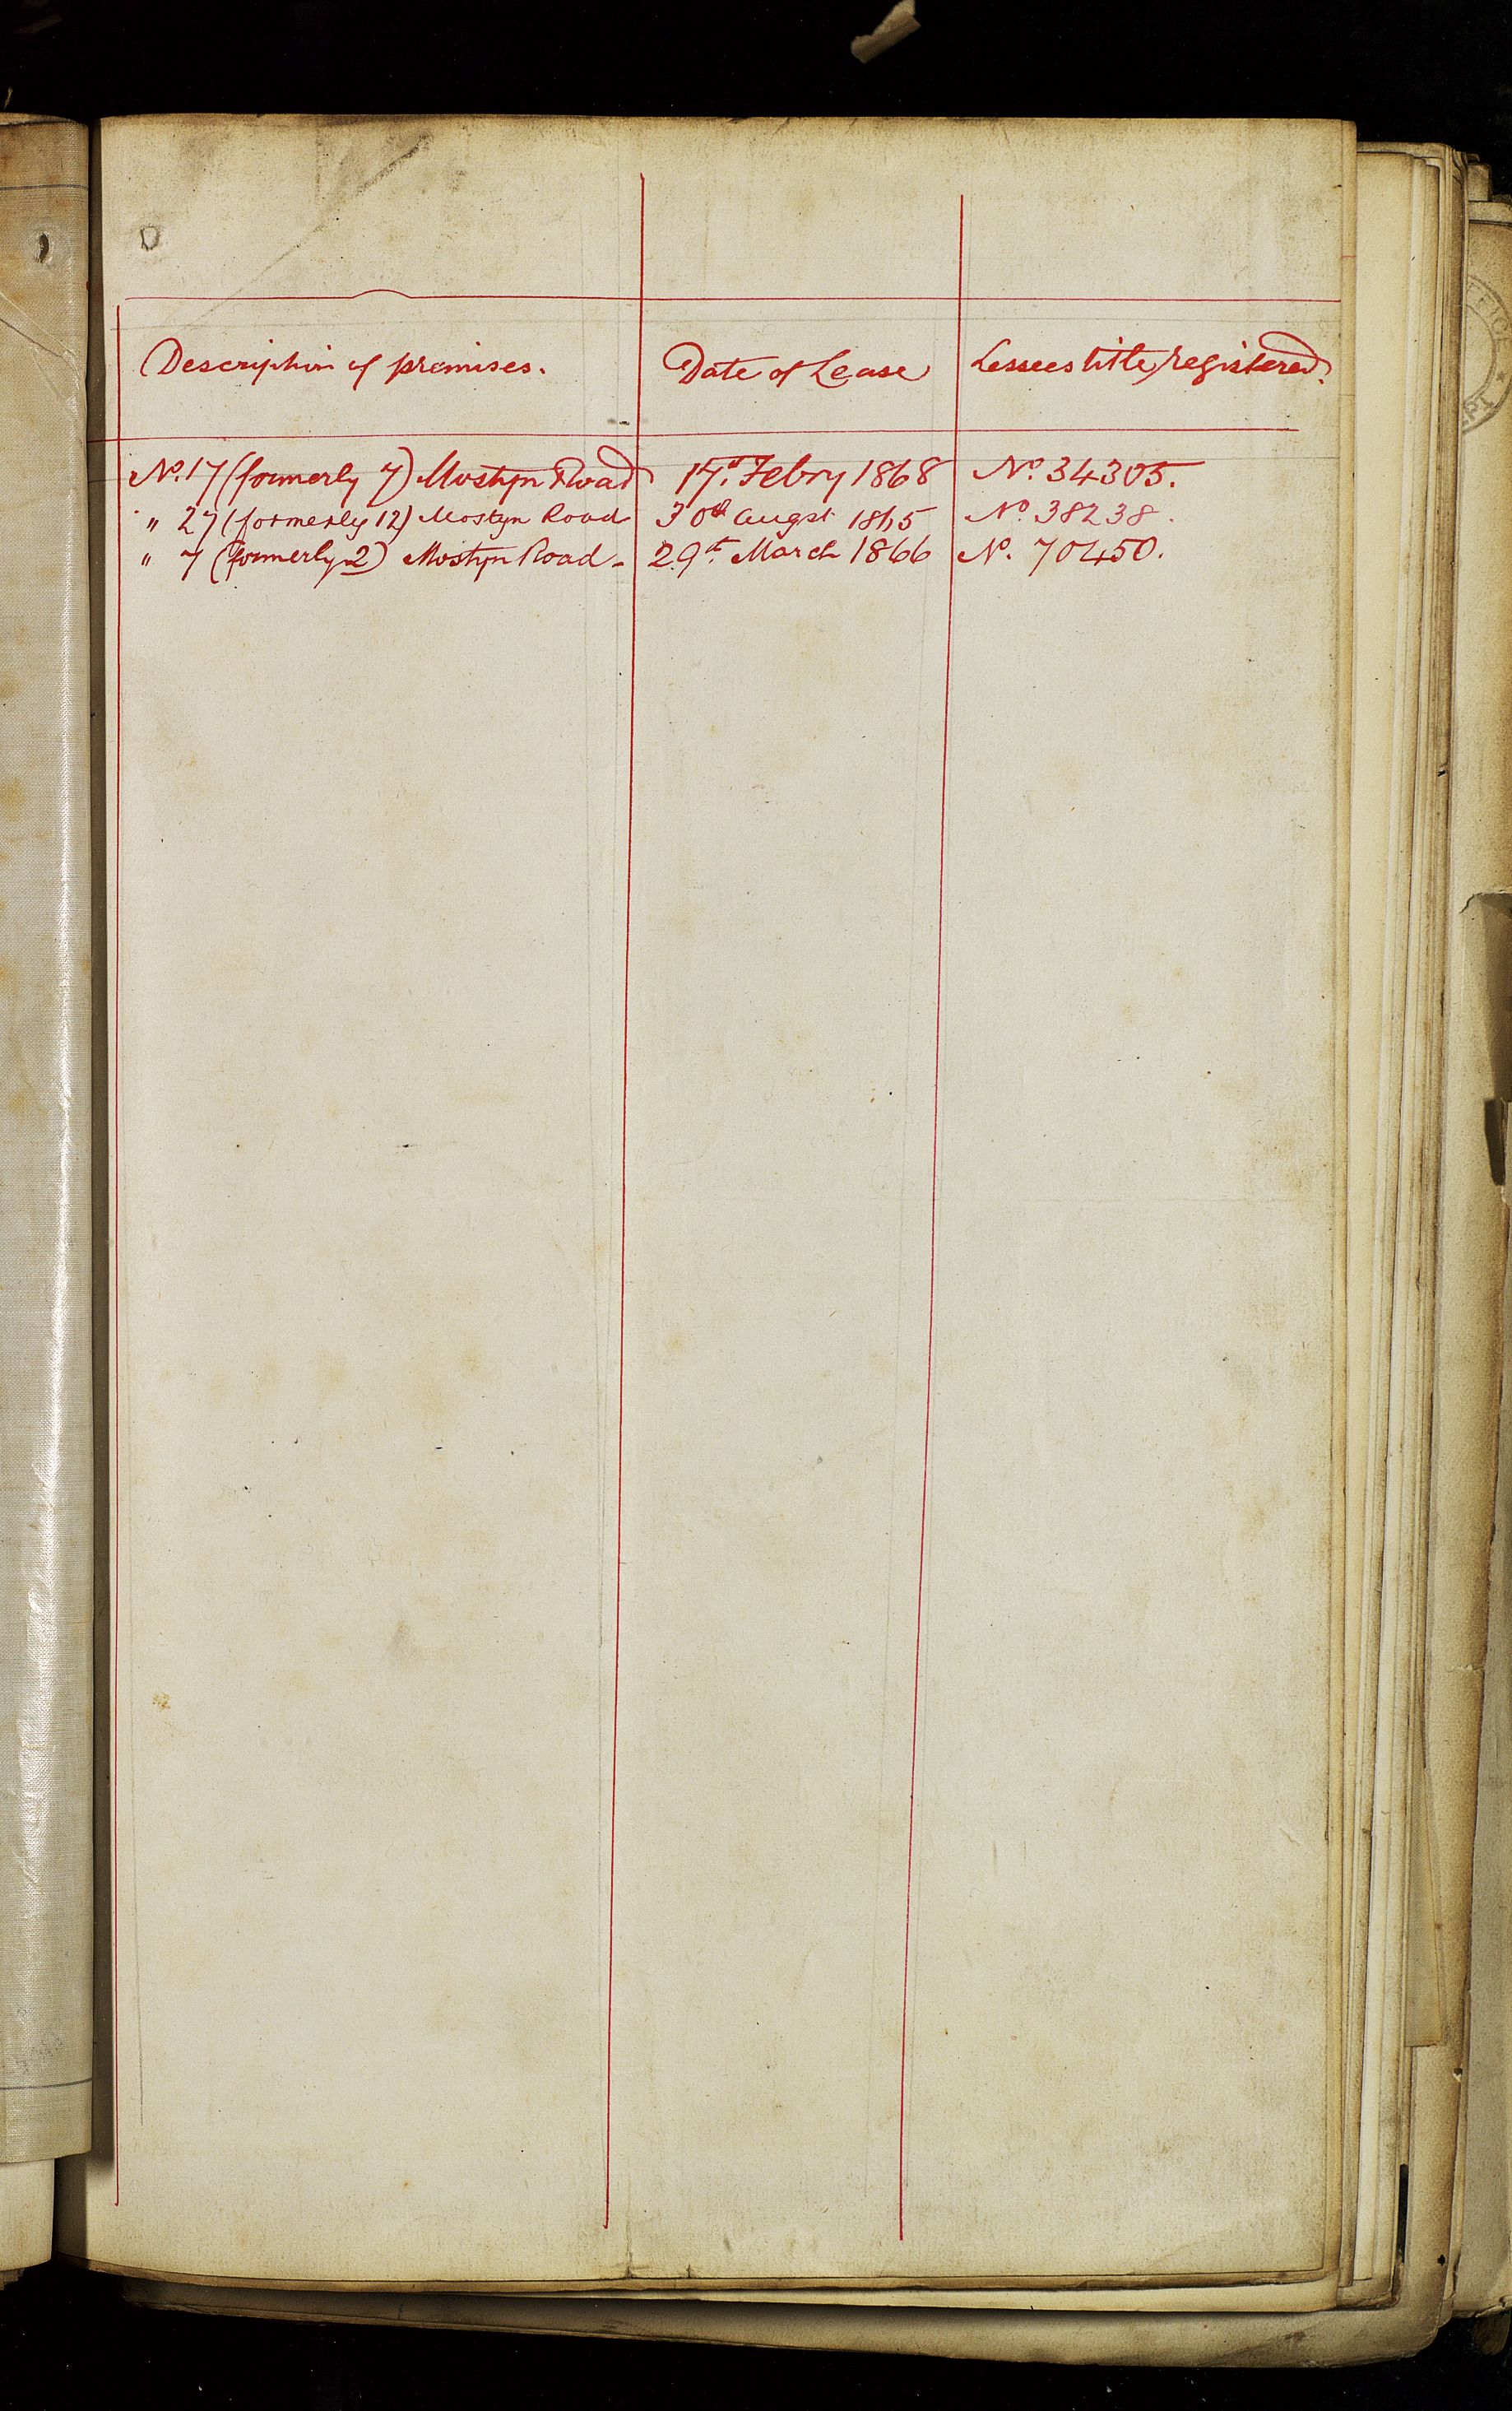 Description of premises. Date of Lease Lessees title registered.
No. 17 (formerly 7) Mostyn Road 17th Febry 1868 No. 34305.
" 27 (formerly 12) Mostyn Road 30th Augst 1865 No. 38238.
" 7 (formerly 2) Mostyn Road - 29th March 1866 No. 70450.